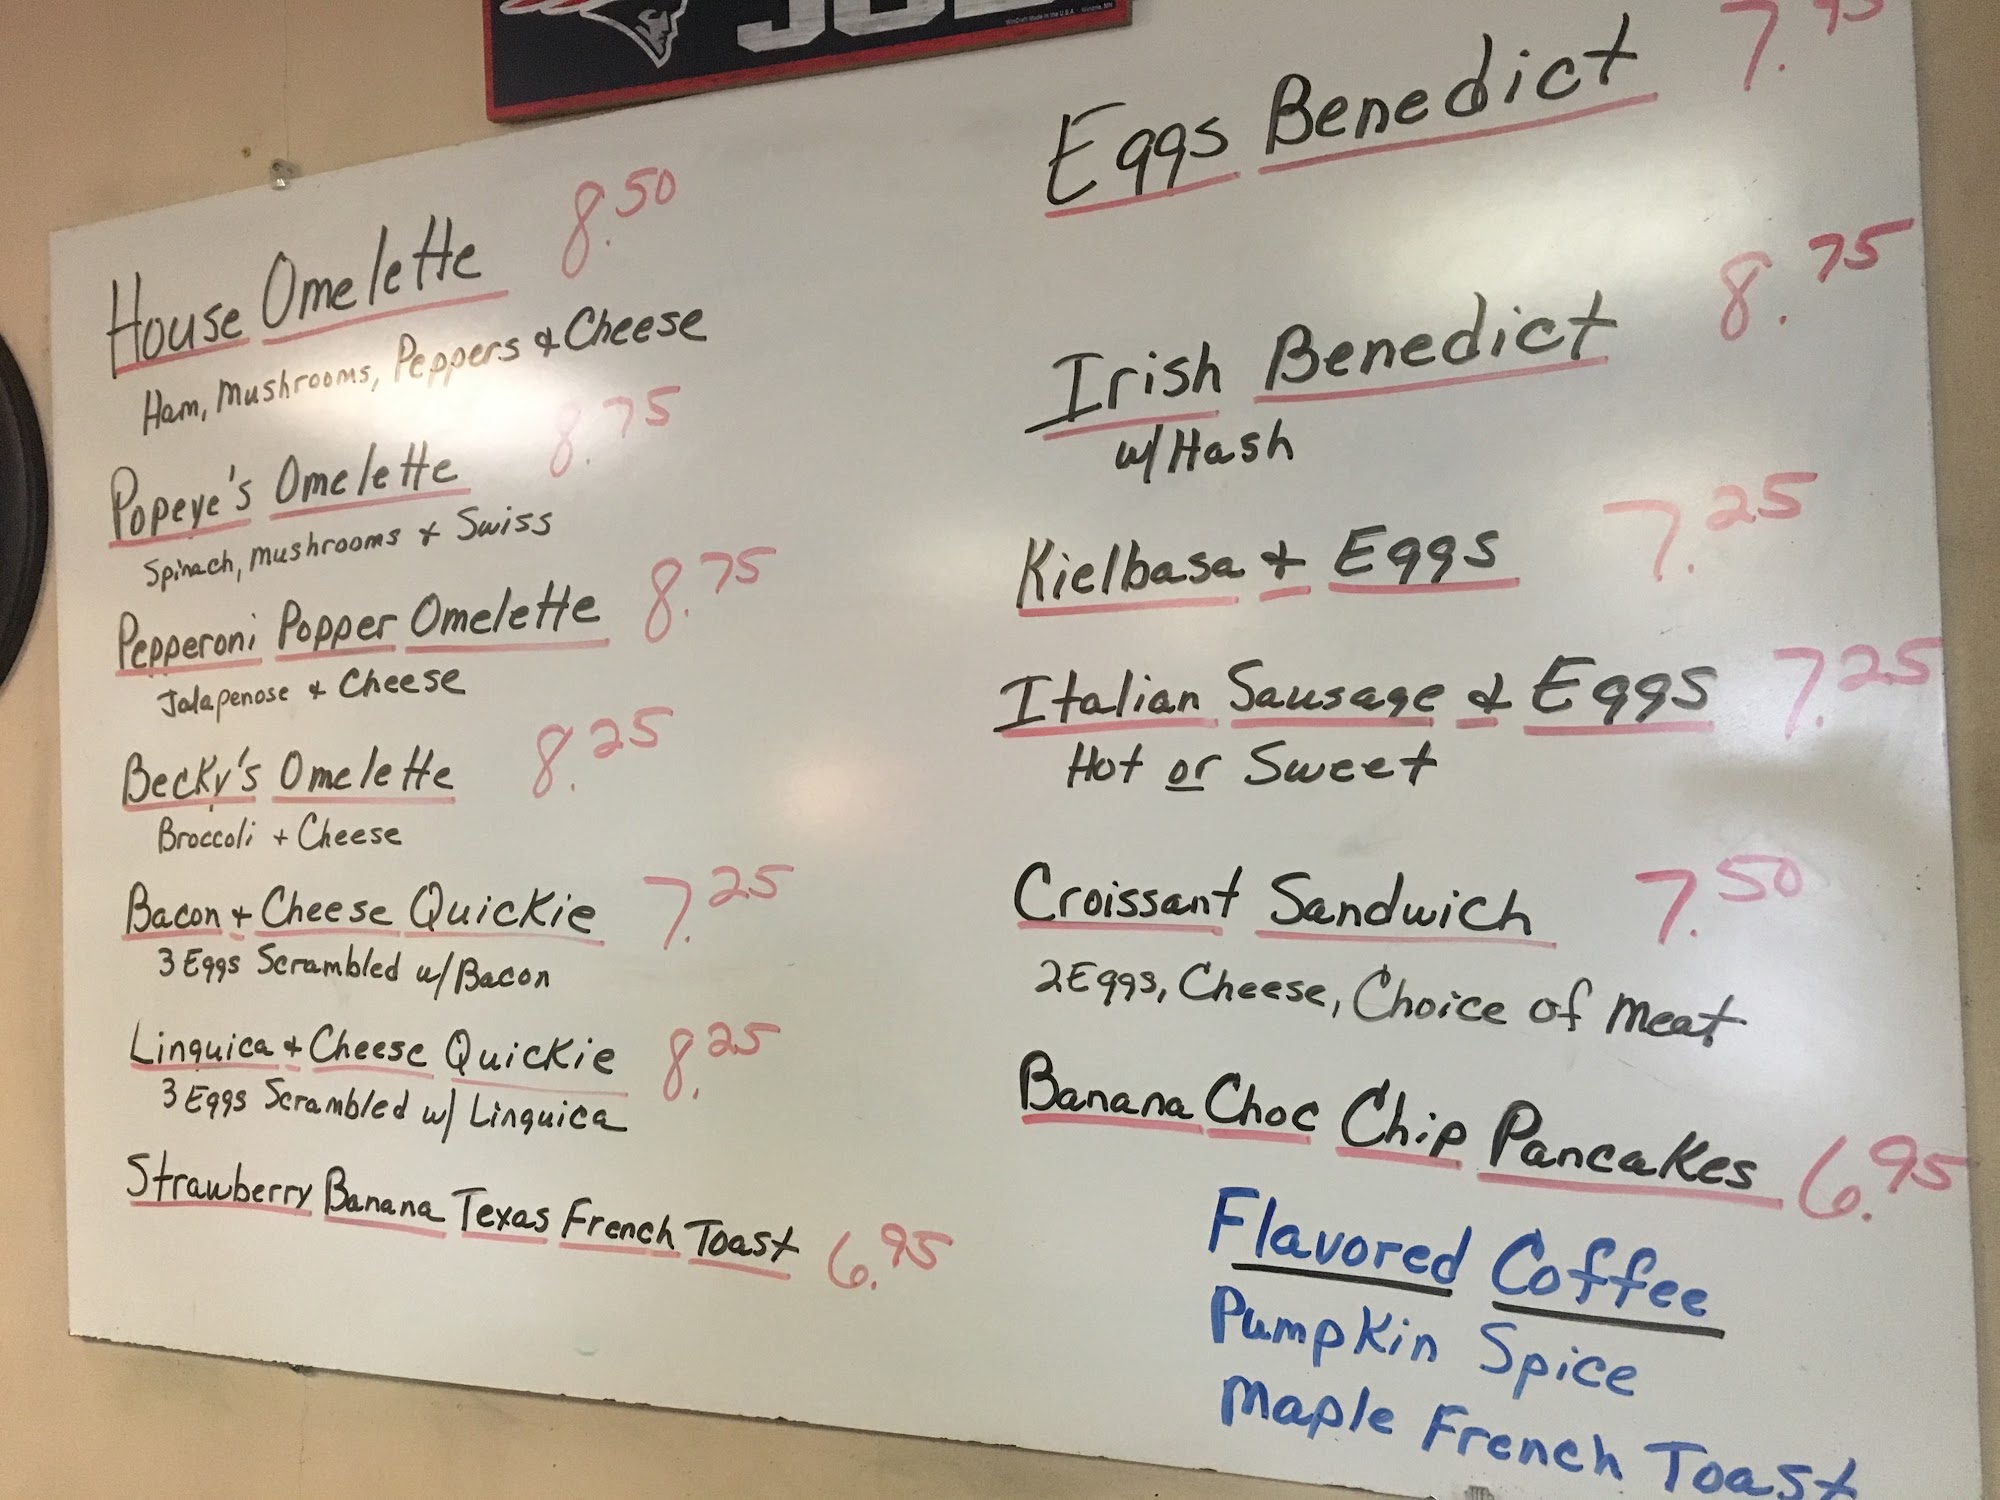 House Omelette 8.50
Ham, Mushrooms, Peppers & Cheese
Popeye's Omelette 8.75
Spinach, Mushrooms & Swiss
Pepperoni Popper Omelette 8.75
Jalapenose & Cheese
Becky's Omelette 8.25
Broccoli + Cheese
Bacon & Cheese Quickie 7.25
3 Eggs Scrambled w/Bacon
Linquica & Cheese Quickie 8.25
3 Eggs Scrambled w/ Linquica
Strawberry Banana Texas French Toast 6.95
Eggs Benedict 7.95
Irish Benedict 8.75
w/Hash
Kielbasa & Eggs 7.25
Italian Sausage & Eggs 7.25
Hot or Sweet
Croissant Sandwich 7.50
2 Eggs, Cheese, Choice of Meat
Banana Choc Chip Pancakes 6.95
Flavored Coffee
Pumpkin Spice
Maple French Toast